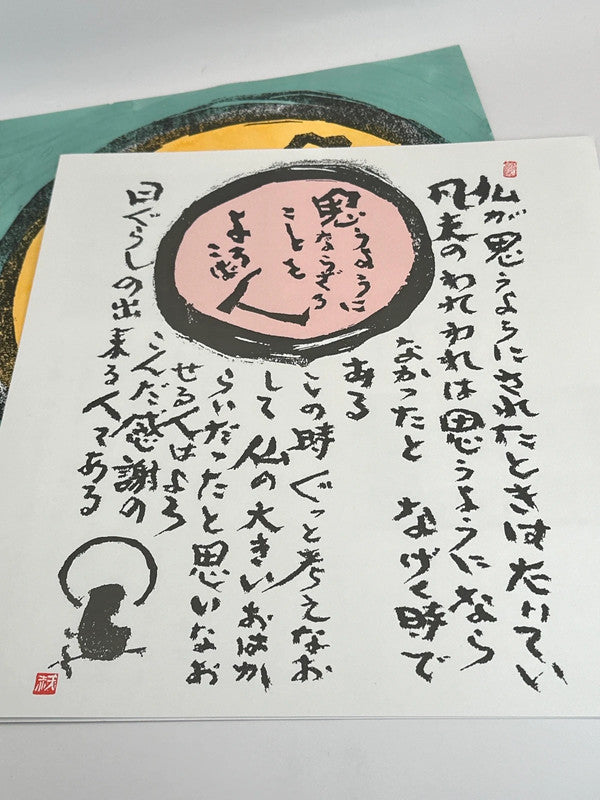 思うように
ならざる
ことを
よろこぶ人
仏が思うようにされたときはたいてい
凡夫のわれわれは思うようになら
なかったと なげく時で
ある
この時ぐっと考えなお
して 仏の大きいおはか
らいだったと思いなお
せる人はよろ
こんだ感謝の
日ぐらしの出来る人である